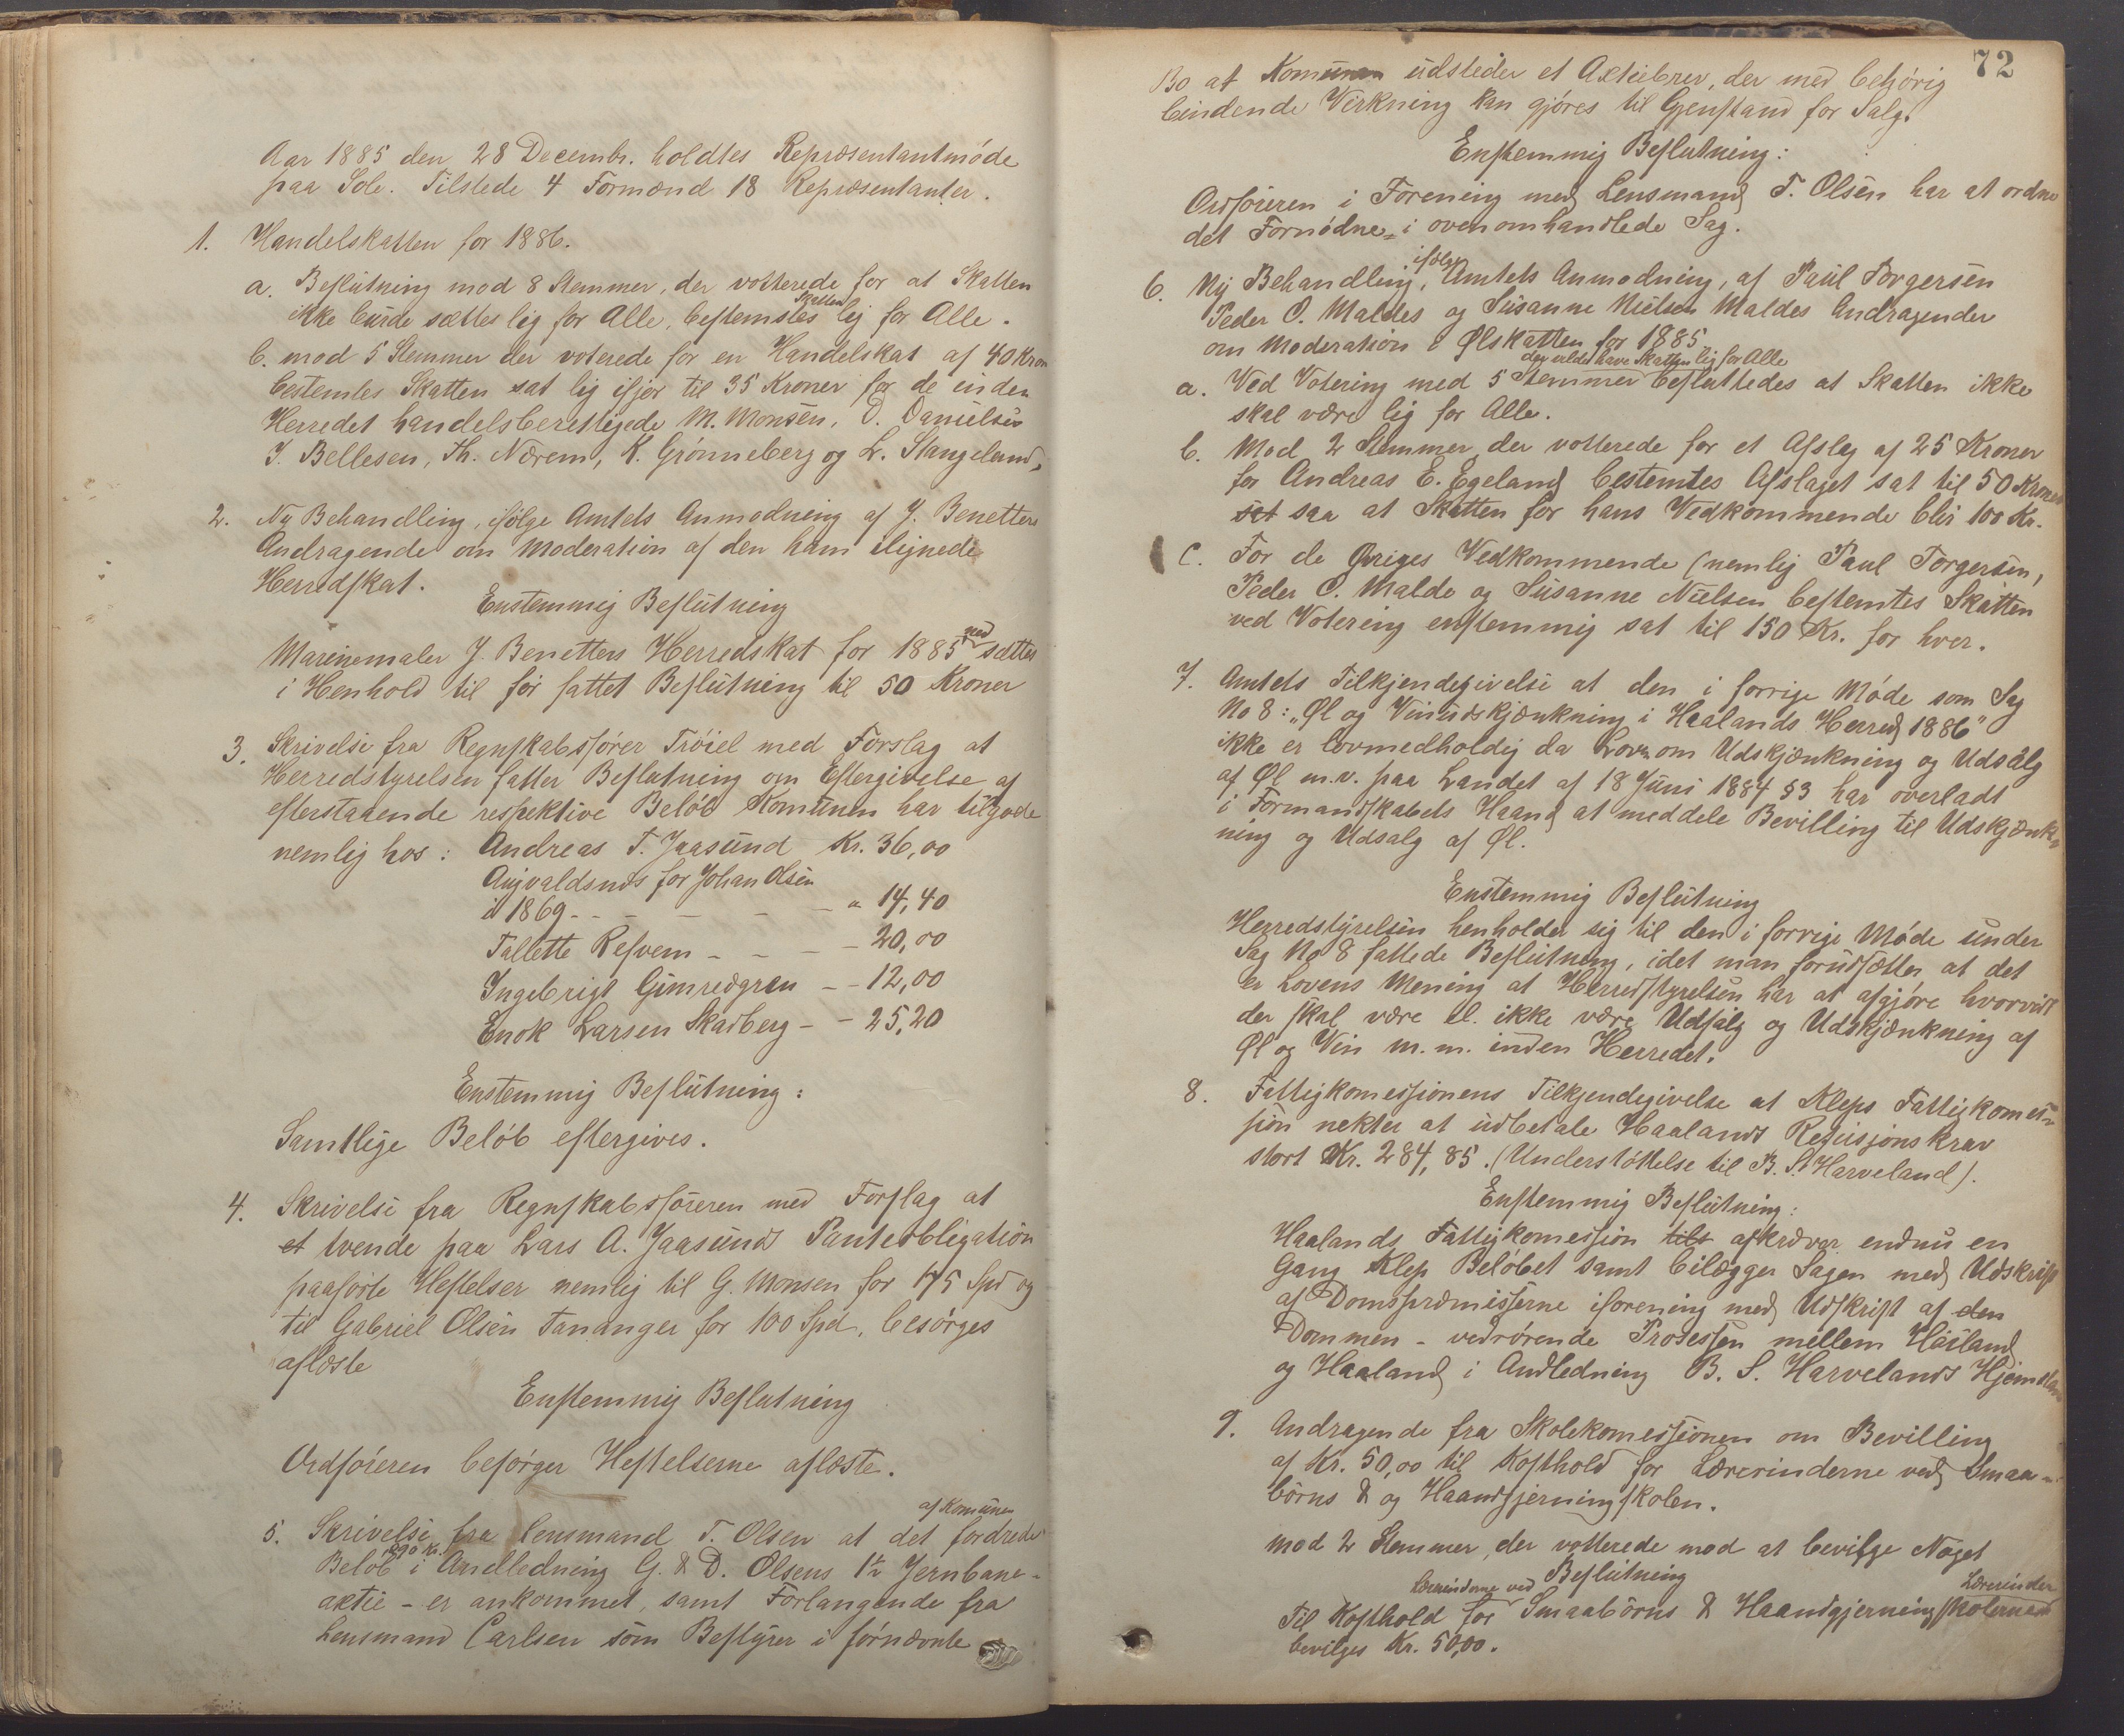 Aar 1885 den 28 Decembr. holdtes Repræsentantmøde
paa Sole. Tilstede 4 Formænd 18 Repræsentanter.
1. Handelskatten for 1886.
a. Beslutning mod 8 Stemmer, der votterede for at Skatten
ikke burde sættes lig for Alle, bestemtes Skatten lig for Alle.
b. mod 5 Stemmer der voterede for en Handelskat af 40 Kron
bestemtes Skatten sat lig ifjor til 35 Kroner for de inden
Herredet handelsberettigede M. Monsen, O. Danielsen
T. Bellesen, Th. Nærem, K. Grønneberg og L. Stangeland.
2. Ny Behandling, ifølge Amtets Anmodning af J. Benetters
Andragende om Moderation af den ham ilignede
Herredskat.
Enstemmig Beslutning
Marinemaler J. Benetters Herredskat for 1885 nedsættes
i Henhold til før fattet Beslutning til 50 Kroner
3. Skrivelse fra Regnskabsfører Trøiel med Forslag at
Herredstyrelsen fatter Beslutning om Eftergivelse af
efterstaaende respektive Beløb Komunen har tilgode
nemlig hos: Andreas T. Jaasund Kr. 36,00
Augvaldsnes for Johan Olsen
i 1869 - - - - - " 14,40
Tallette Refvem - - - - 20,00
Ingebrigt Gimredgren - - 12,00
Enok Larsen Skadberg - - 25,20
Enstemmig Beslutning:
Samtlige Beløb eftergives.
4. Skrivelse fra Regnskabsføreren med Forslag at
et tvende paa Lars A. Jaasunds Panteobligation
paaførte Heftelser nemlig til G. Monsen for 175 Spd og
til Gabriel Olsen Tananger for 100 Spd, besørges
aflæste
Enstemmig Beslutning
Ordføreren besørger Heftelserne aflæste.
5. Skrivelse fra lensmand T. Olsen at det af Komunen fordrede
Beløb i Anelledning G. & D. Olsens 1½ Jernbane-
aktie - er ankommet, samt Forlangende fra
Lensmand Carlsen som Bestyrer i fornævnte
72
Bo at Komunen udsteder et Axtiebrev, der med behørig
bindende Virkning kan gjøres til Gjenstand for Salg.
Enstemmig Beslutning:
Ordføreren i Forening med Lensmand T. Olsen har at ordne
det Fornødne i ovenomhandlede Sag.
6. Ny Behandling, ifølge Amtets Anmodning, af Paul Torgersen
Peder O. Maldes og Susanne Nielsen Maldes Andragender
om Moderation i Ølskatten for 1885.
a. Ved Votering med 5 Stemmer der vilde have Skatten lig for Alle besluttedes at Skatten ikke
skal være lig for Alle.
b. Mod 2 Stemmer der votterede for et Afslag af 25 Kroner
for Andreas E. Egeland bestemtes Afslaget sat til 50 Kroner
set saa at Skatten for hans Vedkommende blir 100 Kr.
c. For de Øvriges Vedkommende (nemlig Paul Torgersen,
Peder O. Malde og Susanne Nielsen bestemtes Skatten
ved Votering enstemmig sat til 150 Kr. for hver.
7. Amtets Tilkjendegivelse at den i forrige Møde som Sag
No 8: "Øl og Vinudskjænkning i Haalands Herred 1886"
ikke er lovmedholdig da Loven om Udskjænkning og Udsalg
af Øl m.v. paa Landet af 18 Juni 1884 §3 har overladt
i Formandskabets Haand at meddele Bevilling til Udskjænk-
ning og Udsalg af Øl.
Enstemmig Beslutning
Herredstyrelsen henholder sig til den i forrige Møde under
Sag No 8 fattede Beslutning, idet man forudsætter, at det
er Lovens Mening at Herredstyrelsen har at afgjøre hvorvidt
der skal være el. ikke være Udsalg og Udskjænkning af
Øl og Vin m.m. inden Herredet.
8. Fattigkomessjonens Tilkjendegivelse at Kleps Fattigkomes-
sjon nekter at udbetale Haalands Refusjonskrav
stort Kr. 284,85. (Understøttelse til B. S. Harveland).
Enstemmig Beslutning:
Haalands Fattigkomessjon tilt afkræver endnu en
Gang Klep Beløbet samt bilægger Sagen med Udskrift
af Domspræmisserne iforening med Udskrift af den
Dommen - vedrørende Prosessen mellem Høiland
og Haaland i Andledning B. S. Harvelands Hjemstavn
9. Andragende fra Skolekomessjonen om Bevilling
af Kr. 50,00 til Kosthold for Lærerinderne ved Smaa-
børns & og Haandgjerningskolen.
mod 2 Stemmer, der votterede mod at bevilge Noget
Beslutning
Til Kosthold for Lærerinderne ved Smaabørns & Haandgjerningskolernes Lærerinder
bevilges Kr. 50,00.